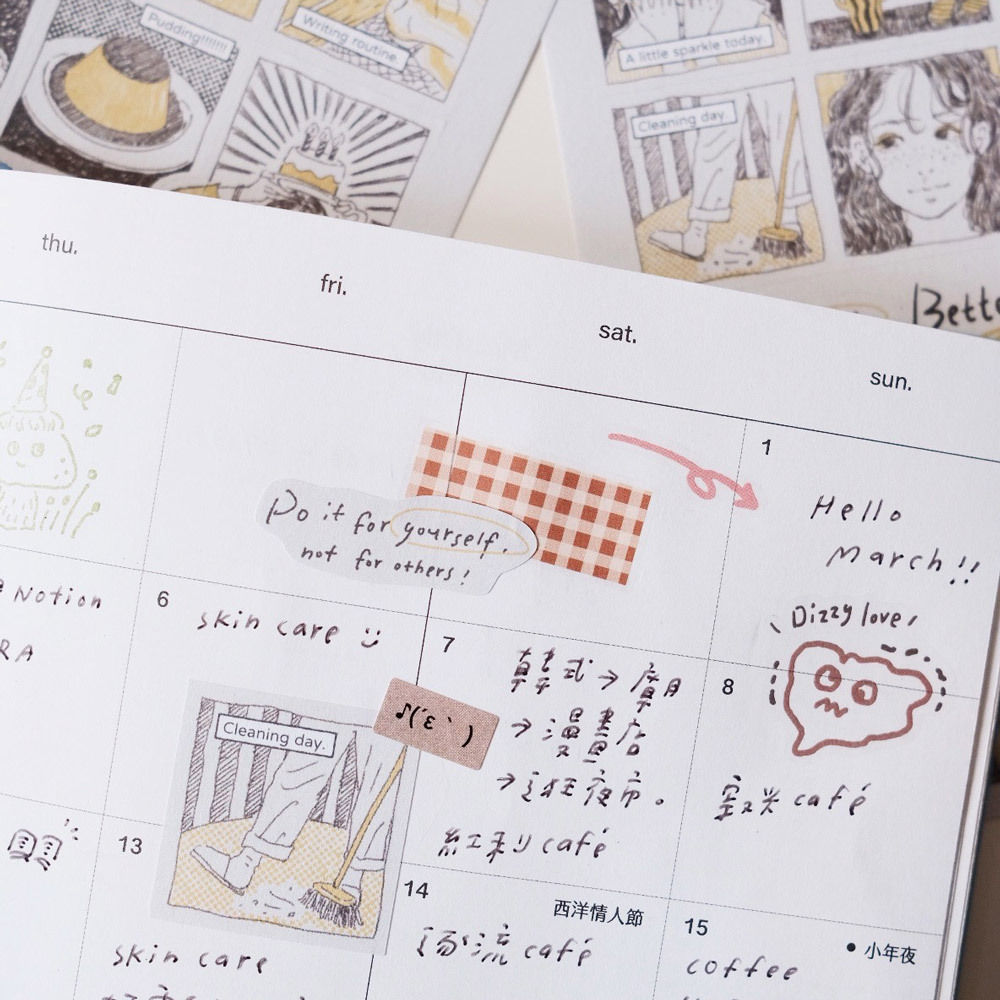 Pudding!!!!!!!
Writing routine.
A little sparkle today.
Cleaning day.
thu.
fri.
sat.
sun.
1
Hello
March!!
Do it for yourself.
not for others!
Dizzy love
Notion
6
skin care
7
韓式→
→漫畫店
→逛夜市。
café
8
café
Cleaning day.
♪(´ε｀ )
13
skin care
14
西洋情人節
café
15
小年夜
coffee